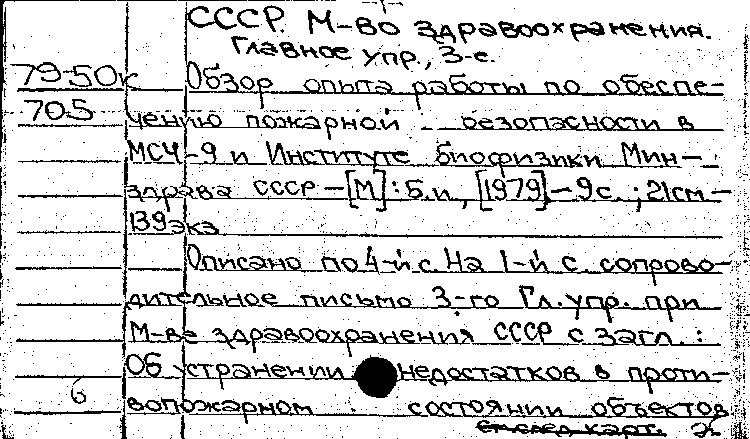 СССР. М-во здравоохранения.
Главное упр., 3-е.
79-50к Обзор опыта работы по обеспе-
705 чению пожарной безопасности в
МСЧ-9 и Институте биофизики Мин-
здрава СССР - [М]: Б.и, [1979] - 9с. ; 21см -
139экз
Описано по 4-й с. На 1-й с. сопрово-
дительное письмо 3-го Гл. упр. при
М-ве здравоохранения СССР с загл. :
Об устранении недостатков в проти-
6 вопожарном состоянии объектов
см след карт.